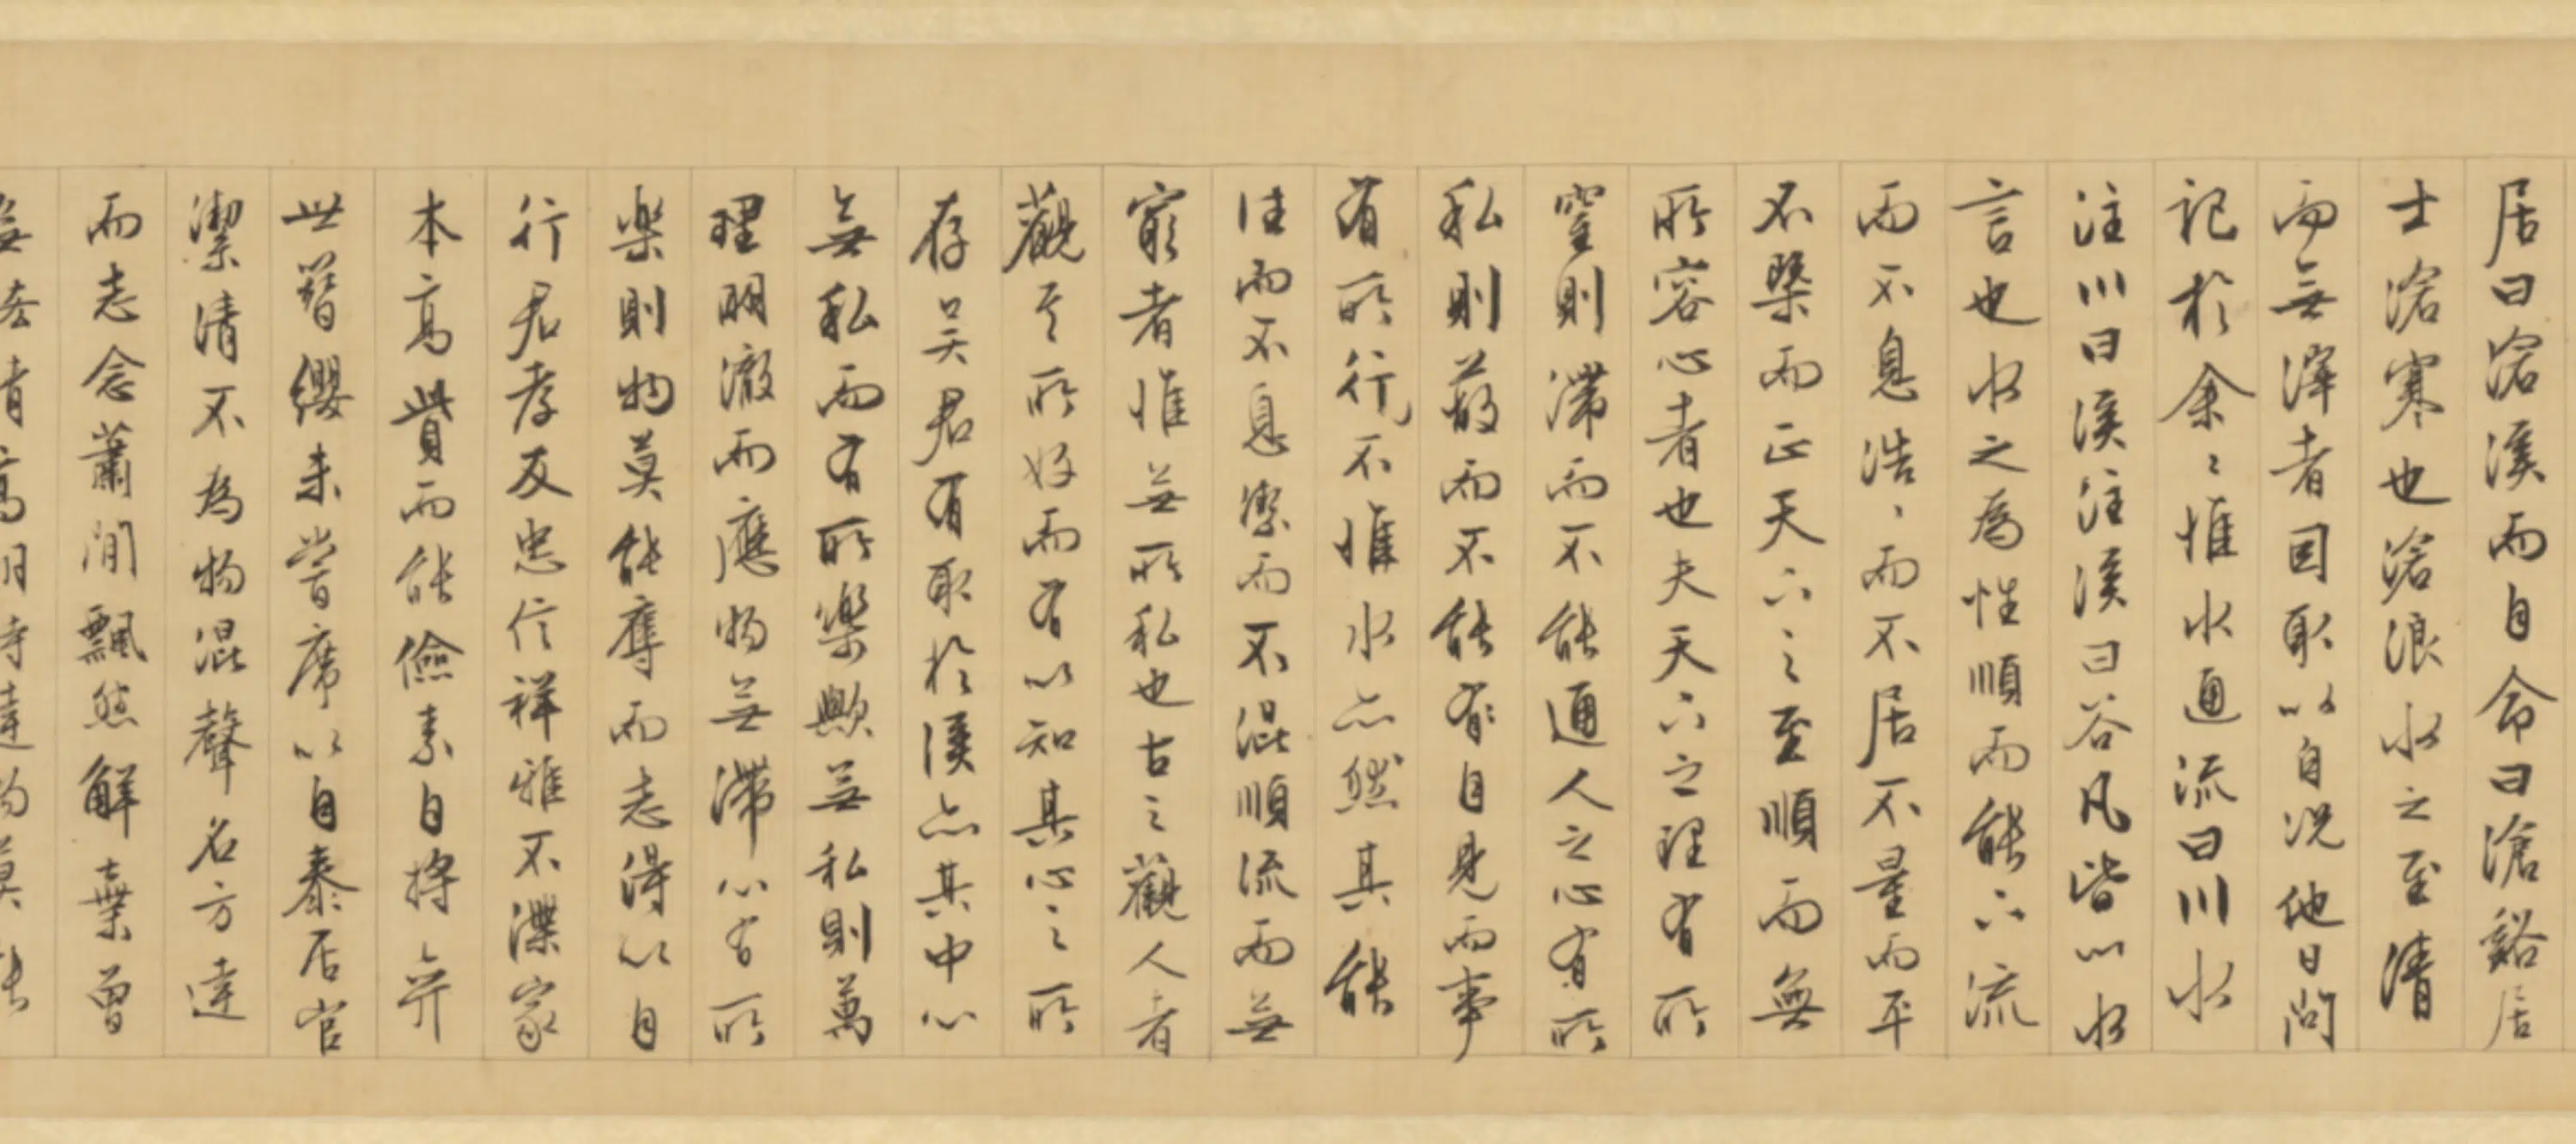 居曰滄溪而自命曰滄谿居
士滄寒也滄浪水之至清
而無滓者因取以自况他日问
記於余〻惟水通流曰川水
注川曰溪注溪曰谷凡皆以水
言也水之為性順而能下流
而不息浩〻而不居不量而平
不槩而正天下之至順而無
所容心者也夫天下之理有所
窒則滯而不能通人之心有所
私則蔽而不能有自見而事
有所行不惟水亦然其能
往而不息潔而不混順流而無
窮者惟無所私也古之觀人者
觀其所好而有以知其心之所
存吴君有取於溪亦其中心
無私而有所樂歟無私則萬
理明澈而應物無滯心有所
樂則物莫能奪而志得以自
行君孝友忠信祥雅不灤家
本高貲而能儉素自將弈
世簪纓未嘗席以自泰居官
潔清不為物混聲名方達
而志念蕭閒飄然解棄曾